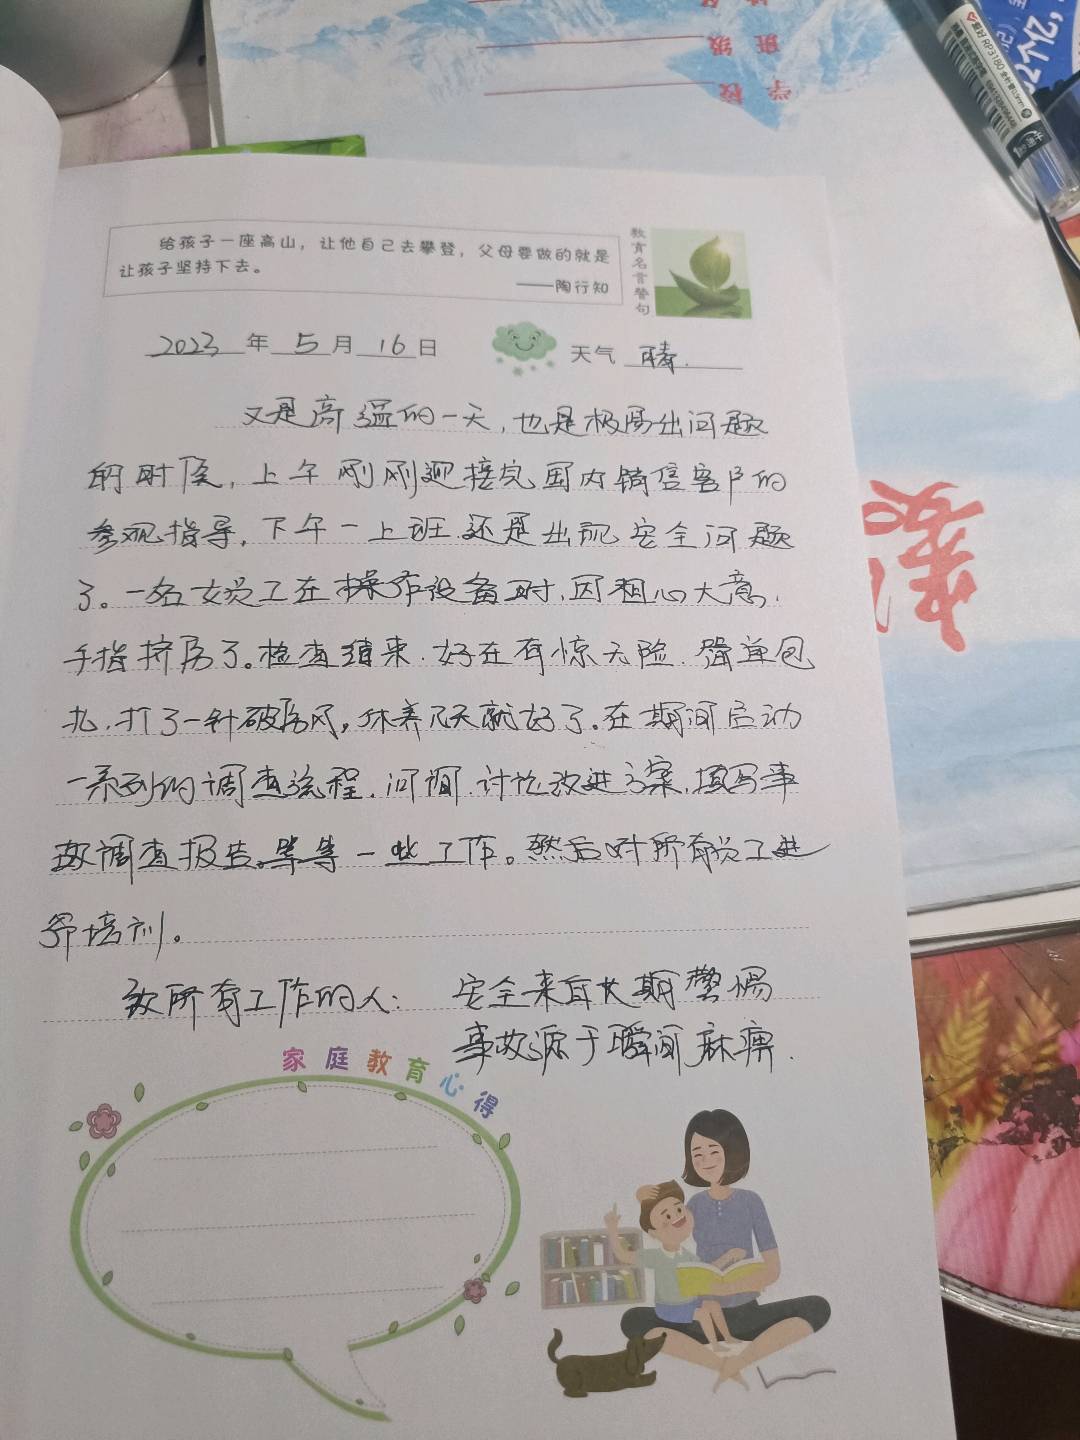 给孩子一座高山，让他自己去攀登，父母要做的就是
让孩子坚持下去。
——陶行知
教育名言警句
2023年5月16日 天气 晴.
又是高温的一天,也是极易出问题
的时候,上午刚刚迎接完国内销售客户的
参观指导,下午一上班还是出现安全问题
了。一名女员工在操作设备时,因粗心大意,
手指挤伤了。检查结果.好在有惊无险.简单包
扎.打了一针破伤风,休养几天就好了.在期间启动
一系列的调查流程.问询.讨论改进方案.填写事
故调查报告.等等一些工作。然后对所有员工进
行培训。
致所有工作的人: 安全来自长期警惕
事故源于瞬间麻痹.
家庭教育心得
学校
班级
RP3180